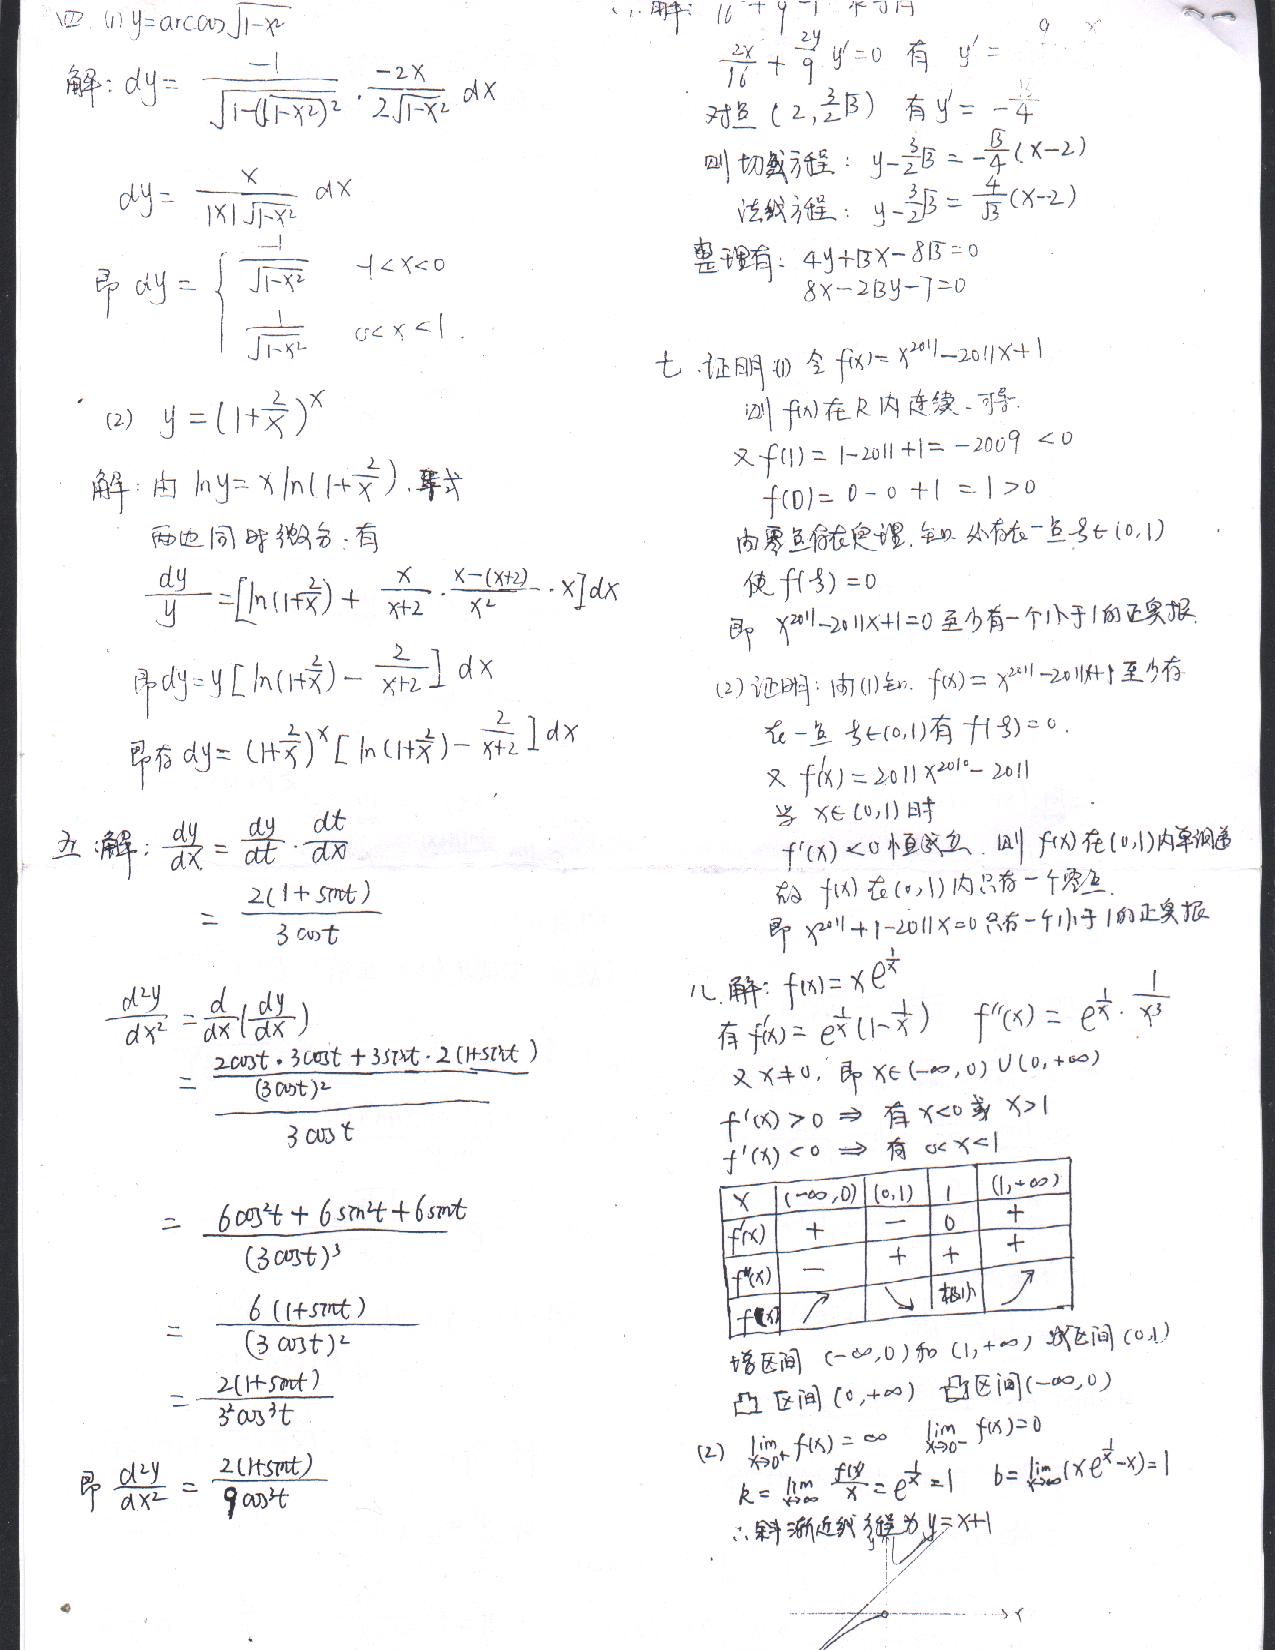 四. (1) y=arcos√(1-x²)
解: dy= -1/√(1-(√(1-x²))²) · -2x/(2√(1-x²)) dx
dy= x/(|x|√(1-x²)) dx
即 dy= { -1/√(1-x²) -1<x<0
1/√(1-x²) 0<x<1.
(2) y=(1+2/x)^x
解: 由 lny=xln(1+2/x). 等式
两边同时微分. 有
dy/y=[ln(1+2/x)+ x/(x+2) · (x-(x+2))/x² · x]dx
即dy=y[ln(1+2/x)- 2/(x+2)] dx
即有 dy=(1+2/x)^x [ln(1+2/x)- 2/(x+2)]dx
五.解: dy/dx = dy/dt · dt/dx
= 2(1+sint)/(3cost)
d²y/dx² = d/dx(dy/dx)
= ((2cost·3cost+3sint·2(1+sint))/(3cost)²)/(3cost)
= (6cos²t+6sin²t+6sint)/(3cost)³
= 6(1+sint)/(3cost)²
= 2(1+sint)/(3²cos³t)
即 d²y/dx² = 2(1+sint)/(9cos³t)
2x/16 + 2y/9 y'=0 有 y'=
对点(2,3/2√3) 有y'= -√3/4
则切线方程: y-3/2√3=-√3/4(x-2)
法线方程: y-3/2√3=4/√3(x-2)
整理有: 4y+√3x-8√3=0
8x-2√3y-7=0
七.证明:(1) 令 f(x)=x²⁰¹¹-2011x+1
则 f(x)在R内连续、可导.
又 f(1)=1-2011+1=-2009<0
f(0)=0-0+1=1>0
由零点存在定理. 知必存在一点ξ∈(0,1)
使 f(ξ)=0
即 x²⁰¹¹-2011x+1=0至少有一个小于1的正实根.
(2)证明: 由(1)知. f(x)=x²⁰¹¹-2011x+1至少存
在一点 ξ∈(0,1)有 f(ξ)=0.
又 f'(x)=2011x²⁰¹⁰-2011
当 x∈(0,1)时
f'(x)<0恒成立. 则 f(x)在(0,1)内单调递
故 f(x)在(0,1)内只有一个零点.
即 x²⁰¹¹+1-2011x=0只有一个小于1的正实根
八.解: f(x)=xe^(1/x)
有 f'(x)=e^(1/x)(1-1/x) f''(x)=e^(1/x)·1/x³
又 x≠0, 即 x∈(-∞,0)∪(0,+∞)
f'(x)>0 ⇒ 有 x<0或 x>1
f'(x)<0 ⇒ 有 0<x<1
x (-∞,0) (0,1) 1 (1,+∞)
f'(x) + - 0 +
f''(x) - + + +
f(x) ↗ ↘ 极小 ↗
增区间 (-∞,0)和(1,+∞) 减区间(0,1)
凹区间(0,+∞) 凸区间(-∞,0)
(2) lim x→0⁺ f(x)=∞ lim x→0⁻ f(x)=0
k=lim x→∞ f(x)/x=e^(1/x)=1 b=lim x→∞(xe^(1/x)-x)=1
∴斜渐近线方程为y=x+1
y
x